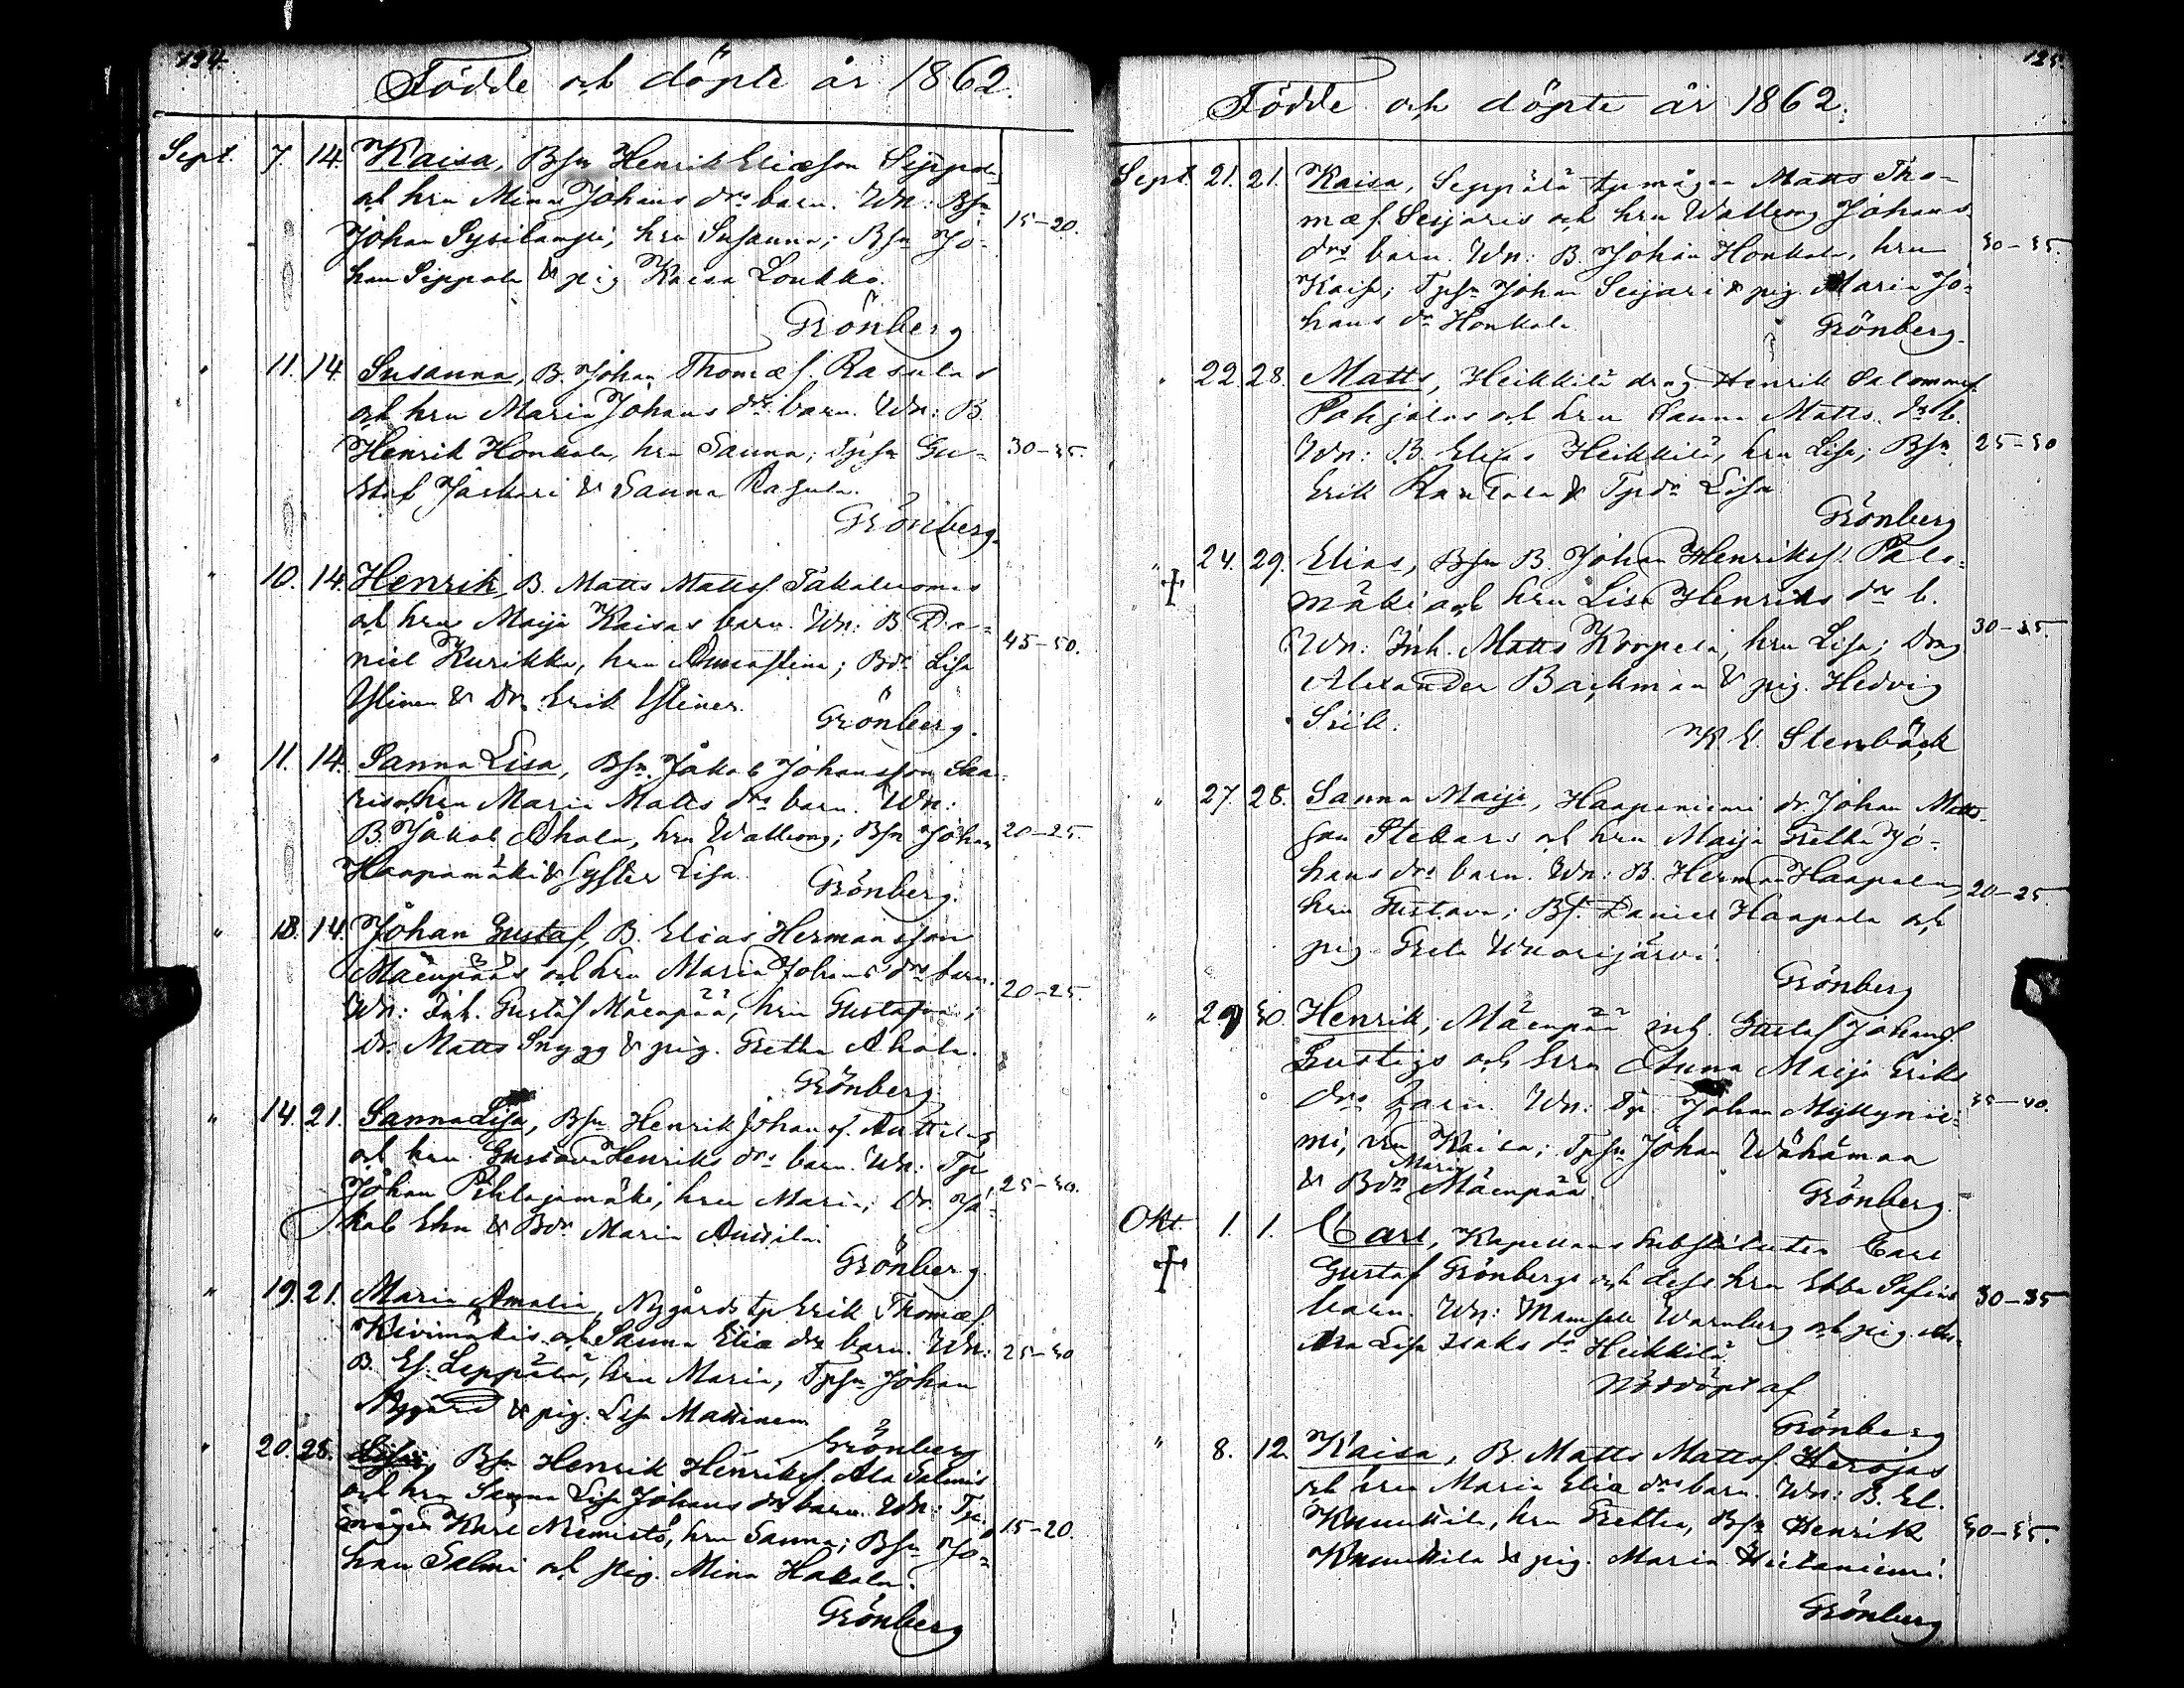 124.
Födde och döpte år 1862.
Sept. 7. 14. Kaisa, Bsn Henrik Eliæson Sippola
och hru Mina Johans drs barn. Wn: Bsn
Johan Pysilampi, hru Susanna; Bsn Jo- 15-20.
han Sippola & pig Kaisa Loukko.
Grönberg
" 11. 14. Susanna, B. Johan Thomæs. Rasulas
och hru Maria Johans drs barn. Wn: B.
Henrik Honkala, hru Sanna; Tpsn Gu- 30-35.
staf Jåskari & Sanna Rasula.
Grönberg.
" 10. 14. Henrik, B. Matts Mattss. Takaluomas
och hrus Maija Kaisas barn. Wn: B Da-
niel Kurikka, hru Annastina; Bdr Lisa 45-50.
Ylinen & Dr. Erik Ylinen.
Grönberg.
" 11. 14. Sanna Lisa, Bsn Jåkob Johansson
och hru Maria Matts drs barn. Wn:
B. Jåkob Ahola, hru Wallborg; Bsn Johan 20-25.
Haapamäki & syster Lisa.
Grönberg.
" 13. 14. Johan Gustaf, B. Elias Hermansson
Mäenpääs och hru Maria Johans drs barn.
Wn: Inh. Gustaf Mäenpää, hru Gustafva; 20-25.
Dr. Matts Snygg & pig. Gretha Ahola.
Grönberg
" 14. 21. Sanna Lisa, Bsn Henrik Johanss. Anttilas
och hru Gustava Henriks drs barn. Wn: Tp
Johan Pihlajamäki, hru Maria; Dr. Ja- 25-30.
kob Ehn & Bdr Maria Anttila.
Grönberg
" 19. 21. Maria Amalia, Nygårds tp Erik Thomæs.
Kivimäkis och Sanna Eliæ drs barn. Wn:
B. Es. Leppälä, hru Maria, Tpsn Johan 25-30
Nygård & pig. Lisa Mattinen
Grönberg
" 20. 28. Lisa, Bsn Henrik Henrikss. Ala Salmis
och hru Sanna Lisa Johans drs barn. Wn: Tp.
mågen Karl Niemistö, hru Sanna; Bsn Jo- 15-20.
han Salmi och pig. Mina Hakala.
Grönberg
125.
Födde och döpte år 1862.
Sept. 21. 21. Kaisa, Seppälä tpmågen Matts Tho-
mæs. Seijaris och hru Wallborg Johans
drs barn. Wn: B. Johan Honkala, hru 30-35.
Kaisa; Tpsn Johan Seijari & pig. Maria Jo-
hans dr Honkala
Grönberg.
" 22. 28. Matts, Heikkilä dreng Henrik Salomons.
Pohjalas och hru Sanna Matts drs b.
Wn: B. Elias Heikkilä, hru Lisa; Bsn 25-30
Erik Rantala & Tpdr Lisa
Grönberg
" 24. 29. Elias, Bsn B. Johan Henrikss. Palo-
mäki och hru Lisa Henriks drs b.
Wn: Inh. Matts Korpela, hru Lisa; Dreng 30-35.
Alexander Backman & pig. Hedvig
Siik.
K E. Stenbäck
" 27. 28. Sanna Maija, Haapaniemi dr Johan Matts-
son Stekars och hru Maija Gretha Jo-
hans drs barn. Wn: B. Herman Haapala, 20-25.
hru Gustava; Bs. Daniel Haapala och
pig Greta Wuorijärvi.
Grönberg
" 29 30. Henrik, Mäenpää inh. Gustaf Johanss.
Lustigs och hru Anna Maija Eriks
drs barn. Wn: Tp. Johan Myllynie- 35-40.
mi, hru Kaisa; Tpsn Johan Wähämaa
& Bdr Maria Mäenpää.
Grönberg.
Okt. 1. 1. Carl, Kapellans Substituten Carl
Gustaf Grönbergs och dess hru Ebba Sofias
barn. Wn: Mamsell Warnberg och pig. An- 30-35
na Lisa Isaks dr Heikkilä.
Nöddöpt af
Grönberg
" 8. 12. Kaisa, B. Matts Mattss. Herojas
och hru Maria Eliæ drs barn. Wn: B. El.
Knuuttila, hru Gretha, Bsn Henrik 30-35.
Knuuttila & pig. Maria Hietaniemi.
Grönberg